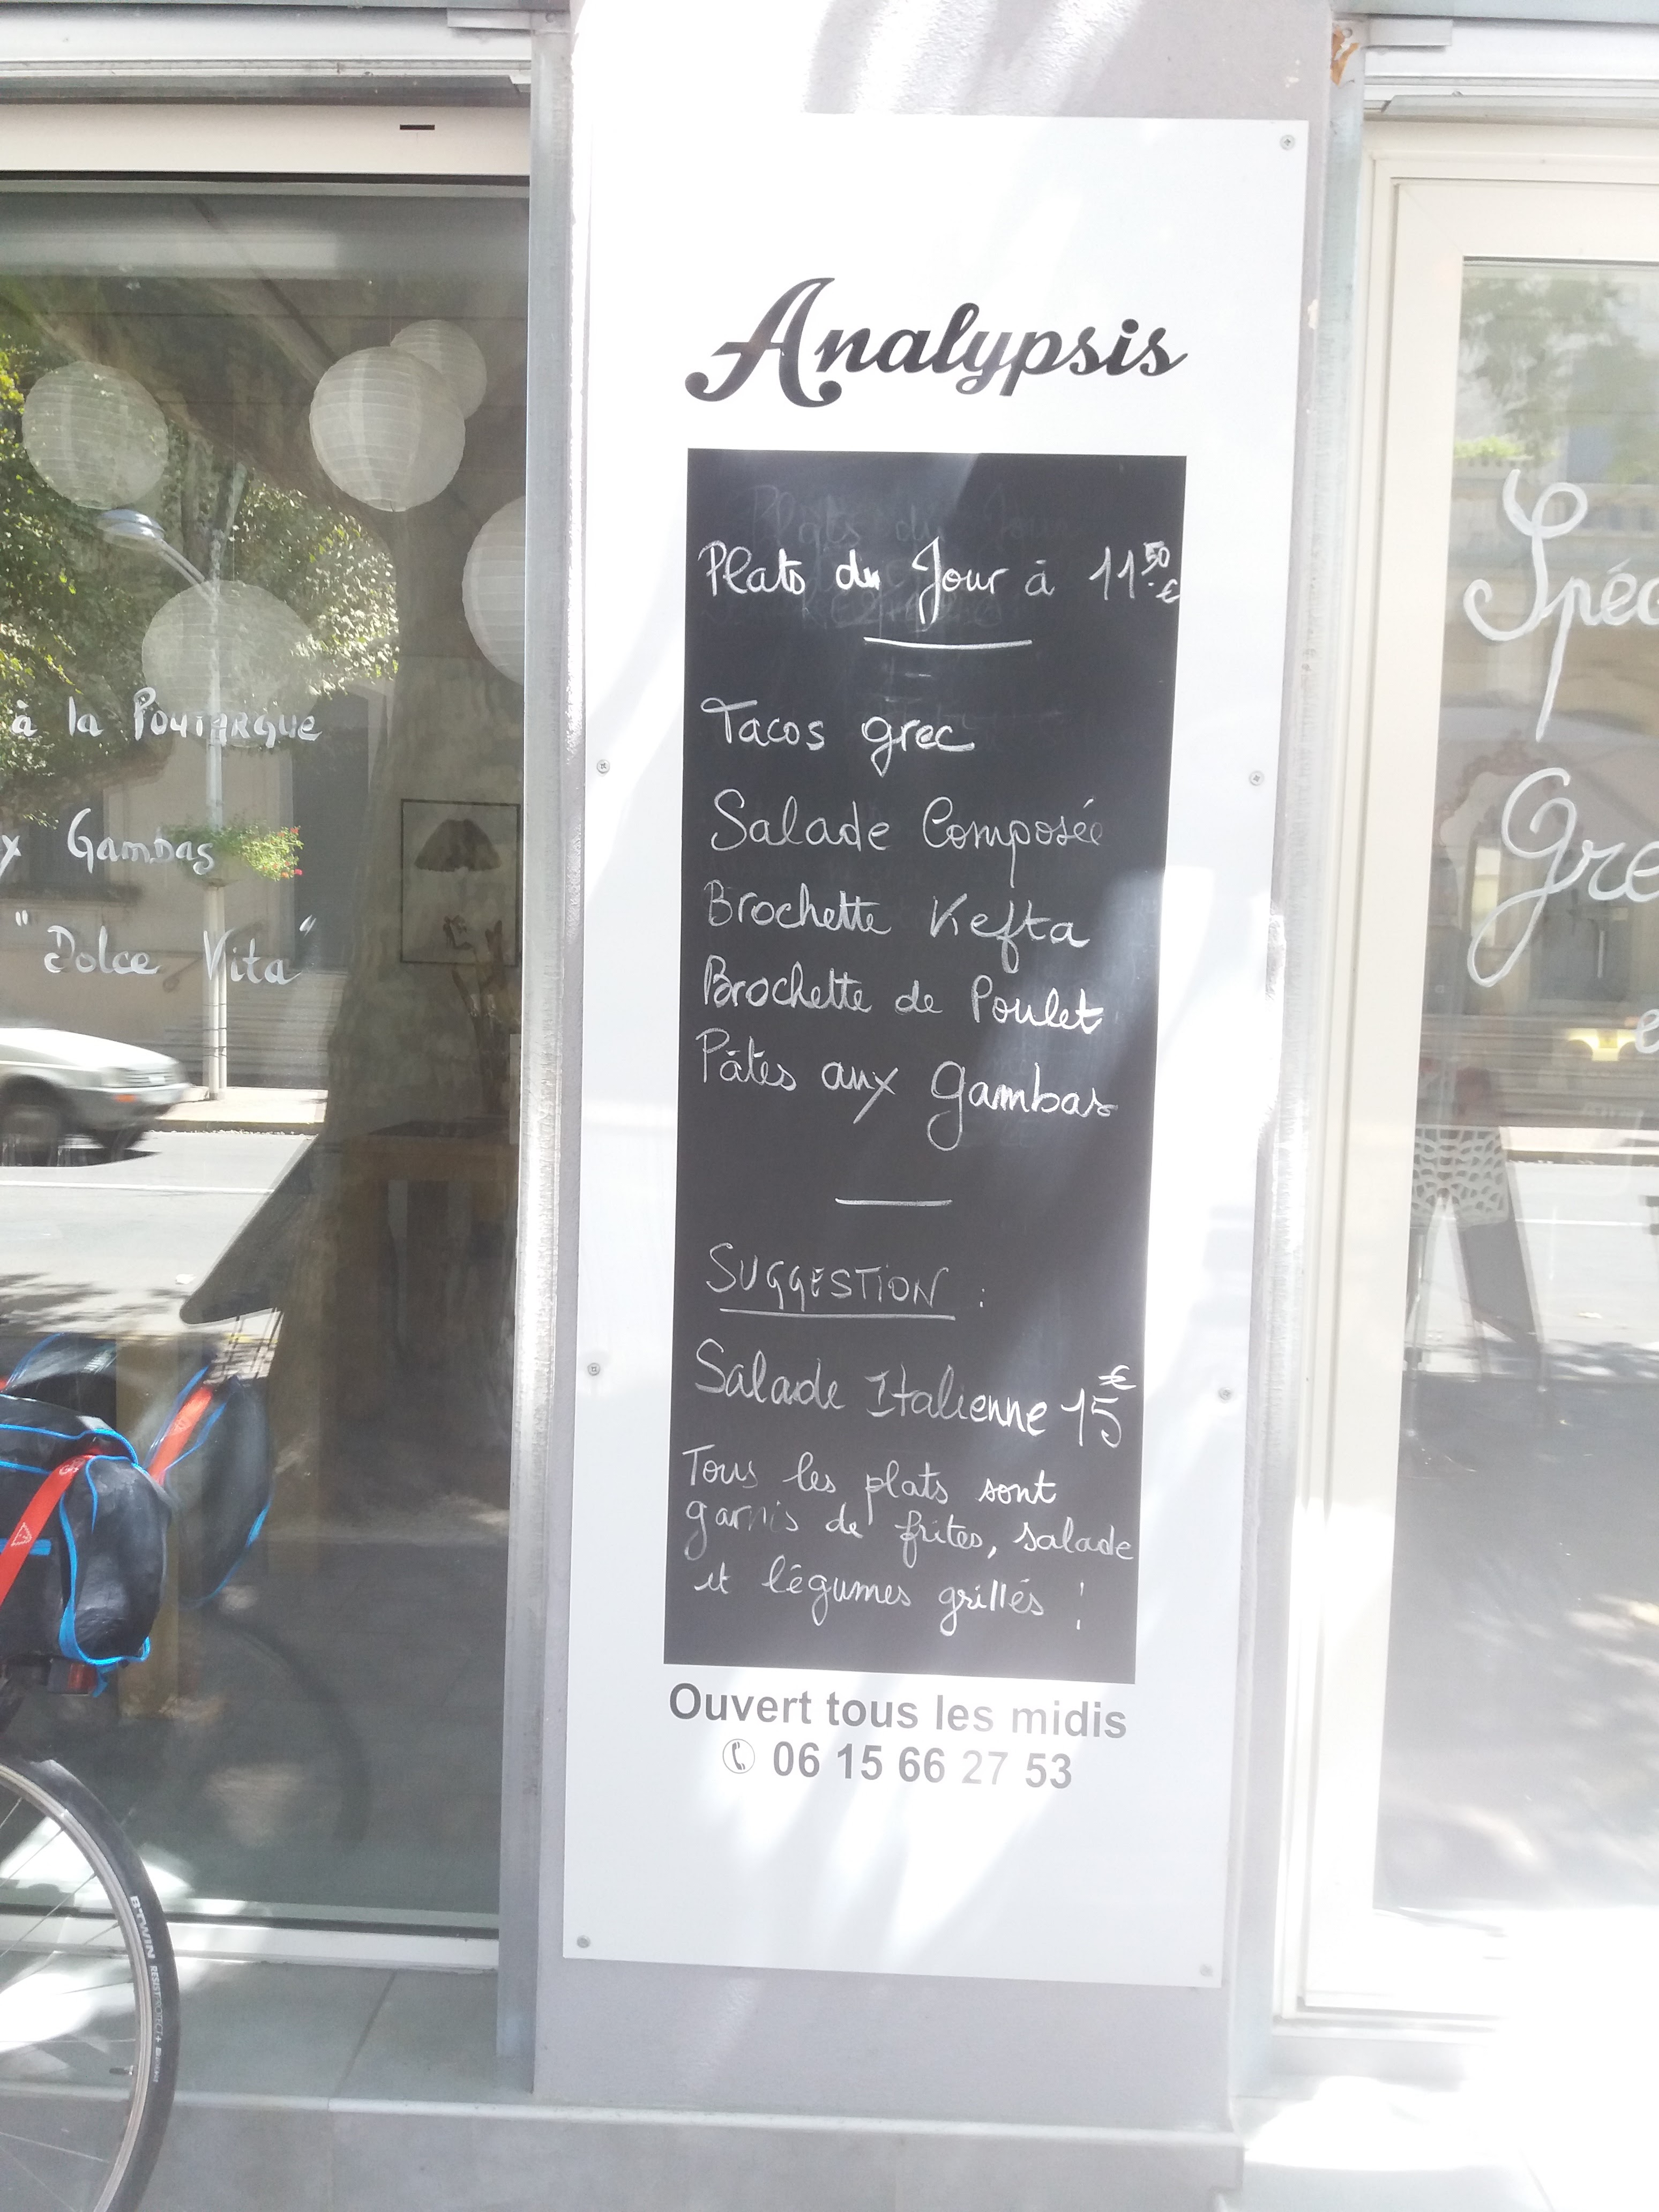 Analypsis
Plats du Jour à 11,50 €
Tacos grec
Salade Composée
Brochette Kefta
Brochette de Poulet
Pâtes aux gambas
SUGGESTION :
Salade Italienne 15€
Tous les plats sont
garnis de frites, salade
et légumes grillés !
Ouvert tous les midis
06 15 66 27 53
à la Poutargue
Gambas
"Dolce Vita"
Spéc
Gre
B'TWIN